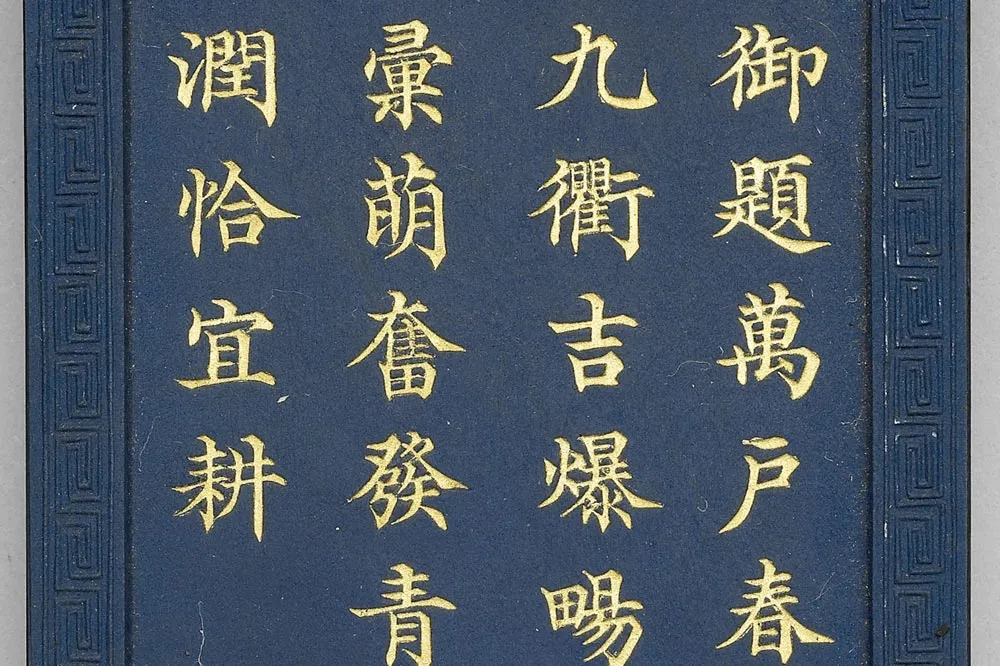 御題萬戶春
九衢吉爆暘
彙萌奮發青
潤恰宜耕